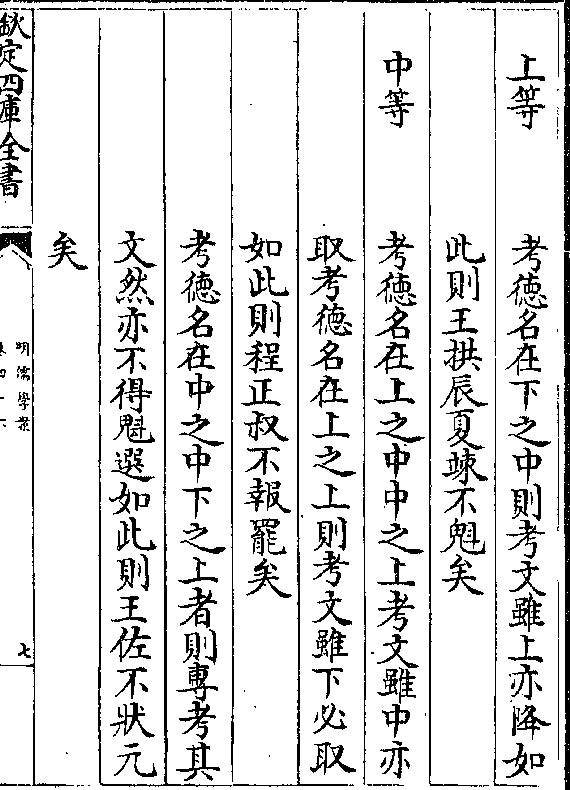 上等　考德名在下之中則考文雖上亦降如
此則王拱辰夏竦不魁矣
中等　考德名在上之中中之上考文雖中亦
取考德名在上之上則考文雖下必取
如此則程正叔不報罷矣
考德名在中之中下之上者則專考其
文然亦不得魁選如此則王佐不狀元
矣
欽定四庫全書
明儒學案
七